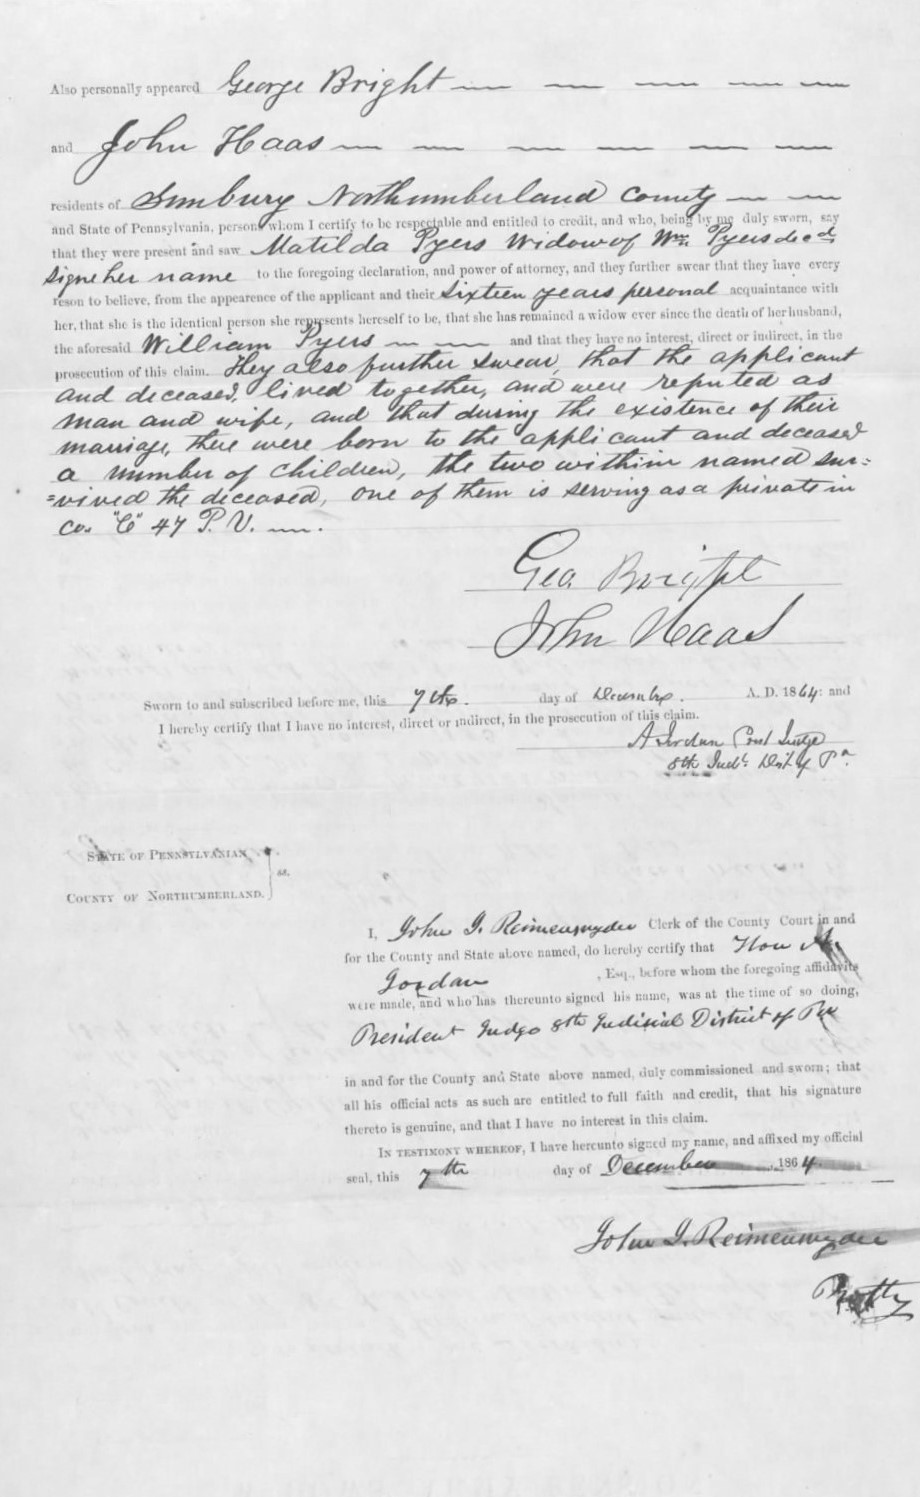 Also personally appeared George Bright
and John Haas
residents of Sunbury Northumberland County
and State of Pennsylvania, persons whom I certify to be respectable and entitled to credit, and who, being by me duly sworn, say
that they were present and saw Matilda Pyers Widow of Wm. Pyers decd
signe her name to the foregoing declaration, and power of attorney, and they further swear that they have every
reson to believe, from the appearence of the applicant and their sixteen years personal acquaintance with
her, that she is the identical person she represents hereself to be, that she has remained a widow ever since the death of her husband,
the aforesaid William Pyers and that they have no interest, direct or indirect, in the
prosecution of this claim. They also further swear, that the applicant
and deceased, lived together, and were reputed as
man and wife, and that during the existence of their
marriage, there were born to the applicant and deceased
a number of children, the two within named sur=
=vived the deceased, one of them is serving as a private in
co. "C" 47 P. V.
Geo. Bright
John Haas
Sworn to and subscribed before me, this 7th. day of December. A. D. 1864: and
I hereby certify that I have no interest, direct or indirect, in the prosecution of this claim.
A Jordan Prest Judge
8th Judl. Dist of Pa.
STATE OF PENNSYLVANIA,
COUNTY OF NORTHUMBERLAND. } ss.
I, John J. Reimensnyder Clerk of the County Court in and
for the County and State above named, do hereby certify that Hon
Jordan , Esq., before whom the foregoing affidavits
were made, and who has thereunto signed his name, was at the time of so doing,
President Judge 8th Judicial District of Pa
in and for the County and State above named, duly commissioned and sworn; that
all his official acts as such are entitled to full faith and credit, that his signature
thereto is genuine, and that I have no interest in this claim.
IN TESTIMONY WHEREOF, I have hereunto signed my name, and affixed my official
seal, this 7th day of December, 1864.
John J. Reimensnyder
Protty